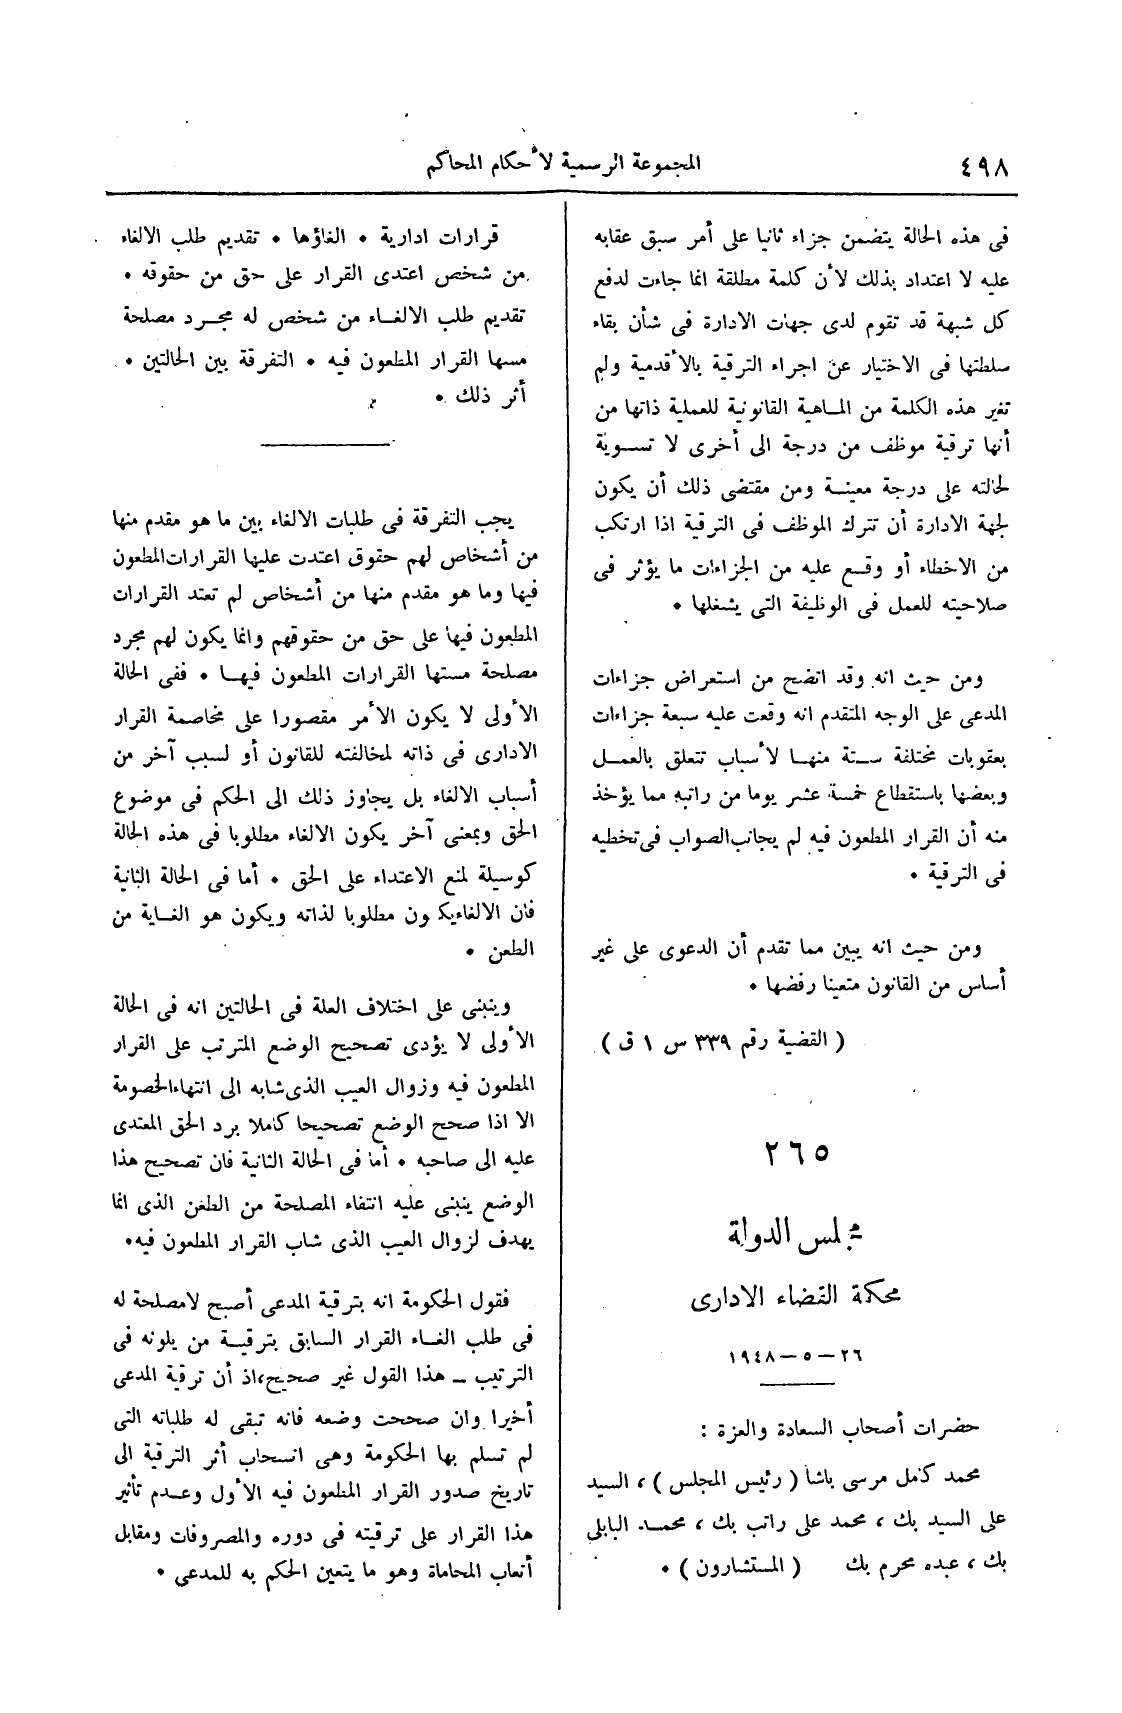 ٤٩٨
المجموعة الرسمية لأحكام المحاكم
فى هذه الحالة يتضمن جزاء ثانيا على أمر سبق عقابه
عليه لا اعتداد بذلك لأن كلمة مطلقة انما جاءت لدفع
كل شبهة قد تقوم لدى جهات الادارة فى شأن بقاء
سلطتها فى الاختيار عن اجراء الترقية بالأقدمية ولم
تغير هذه الكلمة من الماهية القانونية للعملية ذاتها من
أنها ترقية موظف من درجة الى أخرى لا تسوية
لحالته على درجة معينة ومن مقتضى ذلك أن يكون
لجهة الادارة أن تترك الموظف فى الترقية اذا ارتكب
من الاخطاء أو وقع عليه من الجزاءات ما يؤثر فى
صلاحيته للعمل فى الوظيفة التى يشغلها •
ومن حيث انه وقد اتضح من استعراض جزاءات
المدعى على الوجه المتقدم انه وقعت عليه سبعة جزاءات
بعقوبات مختلفة ستة منها لأسباب تتعلق بالعمل
وبعضها باستقطاع خمسة عشر يوما من راتبه مما يؤخذ
منه أن القرار المطعون فيه لم يجانب الصواب فى تخطيه
فى الترقية •
ومن حيث انه يبين مما تقدم أن الدعوى على غير
أساس من القانون متعينا رفضها •
( القضية رقم ٣٣٩ س ١ ق )
٢٦٥
مجلس الدولة
محكمة القضاء الادارى
٢٦ – ٥ – ١٩٤٨
حضرات أصحاب السعادة والعزة :
محمد كامل مرسى باشا ( رئيس المجلس ) ، السيد
على السيد بك ، محمد على راتب بك ، محمد البابلى
بك ، عبده محرم بك ( المستشارون ) •
قرارات ادارية • الغاؤها • تقديم طلب الالغاء
من شخص اعتدى القرار على حق من حقوقه •
تقديم طلب الالغاء من شخص له مجرد مصلحة
مسها القرار المطعون فيه • التفرقة بين الحالتين •
أثر ذلك •
يجب التفرقة فى طلبات الالغاء بين ما هو مقدم منها
من أشخاص لهم حقوق اعتدت عليها القرارات المطعون
فيها وما هو مقدم منها من أشخاص لم تعتد القرارات
المطعون فيها على حق من حقوقهم وانما يكون لهم مجرد
مصلحة مستها القرارات المطعون فيها • ففى الحالة
الأولى لا يكون الأمر مقصورا على مخاصمة القرار
الادارى فى ذاته لمخالفته للقانون أو لسبب آخر من
أسباب الالغاء بل يجاوز ذلك الى الحكم فى موضوع
الحق وبمعنى آخر يكون الالغاء مطلوبا فى هذه الحالة
كوسيلة لمنع الاعتداء على الحق • أما فى الحالة الثانية
فان الالغاء يكون مطلوبا لذاته ويكون هو الغاية من
الطعن •
وينبنى على اختلاف العلة فى الحالتين انه فى الحالة
الأولى لا يؤدى تصحيح الوضع المترتب على القرار
المطعون فيه وزوال العيب الذى شابه الى انتهاء الخصومة
الا اذا صحح الوضع تصحيحا كاملا برد الحق المعتدى
عليه الى صاحبه • أما فى الحالة الثانية فان تصحيح هذا
الوضع ينبنى عليه انتفاء المصلحة من الطعن الذى انما
يهدف لزوال العيب الذى شاب القرار المطعون فيه•
فقول الحكومة انه بترقية المدعى أصبح لا مصلحة له
فى طلب الغاء القرار السابق بترقية من يلونه فى
الترتيب – هذا القول غير صحيح،اذ أن ترقية المدعى
أخيرا وان صححت وضعه فانه تبقى له طلباته التى
لم تسلم بها الحكومة وهى انسحاب أثر الترقية الى
تاريخ صدور القرار المطعون فيه الأول وعدم تأثير
هذا القرار على ترقيته فى دوره والمصروفات ومقابل
أتعاب المحاماة وهو ما يتعين الحكم به للمدعى •